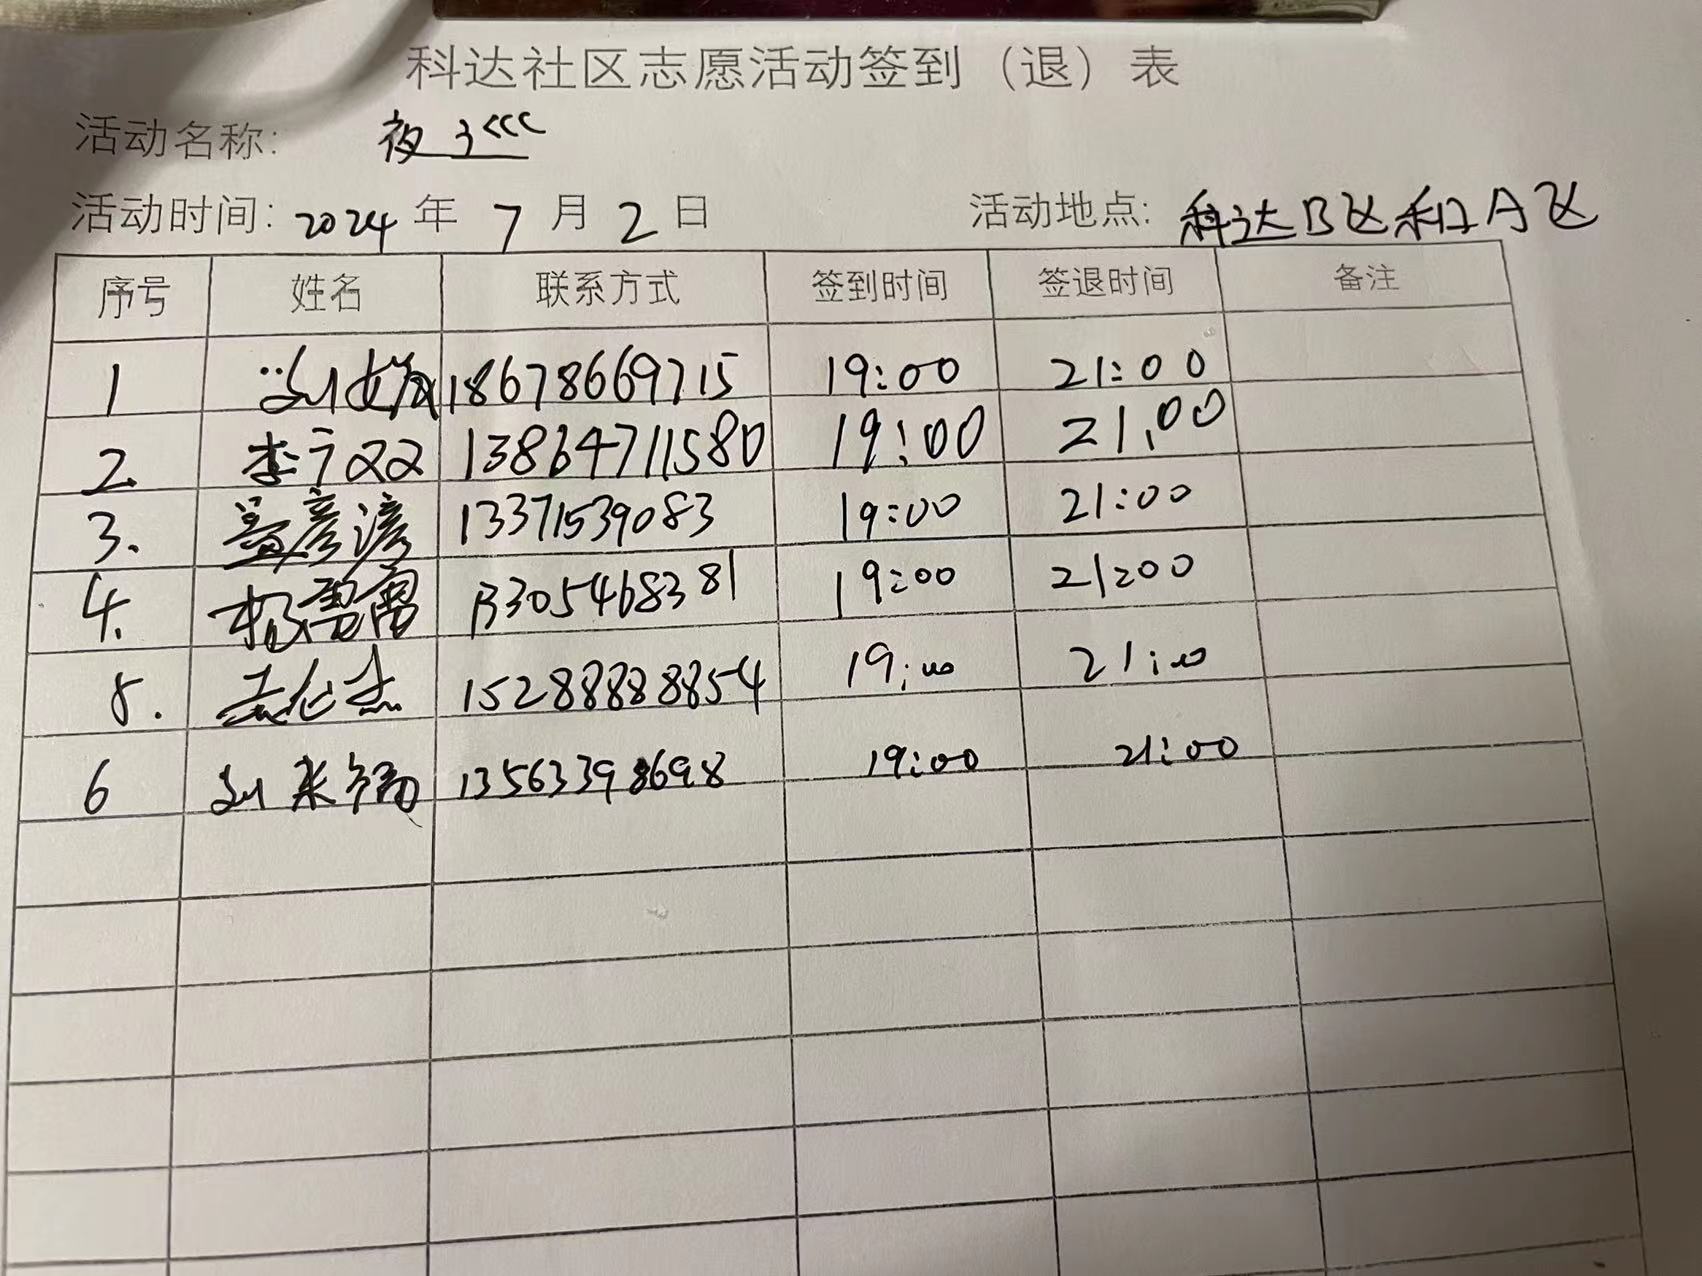 科达社区志愿活动签到（退）表
活动名称: 夜巡
活动时间: 2024 年 7 月 2 日 活动地点: 科达B区和A区
序号 姓名 联系方式 签到时间 签退时间 备注
1 刘 18678669715 19:00 21:00
2. 李 13864711580 19:00 21:00
3. 彦 13371539083 19:00 21:00
4. 杨 13305468381 19:00 21:00
5. 15288888854 19:00 21:00
6 刘来福 13563398698 19:00 21:00